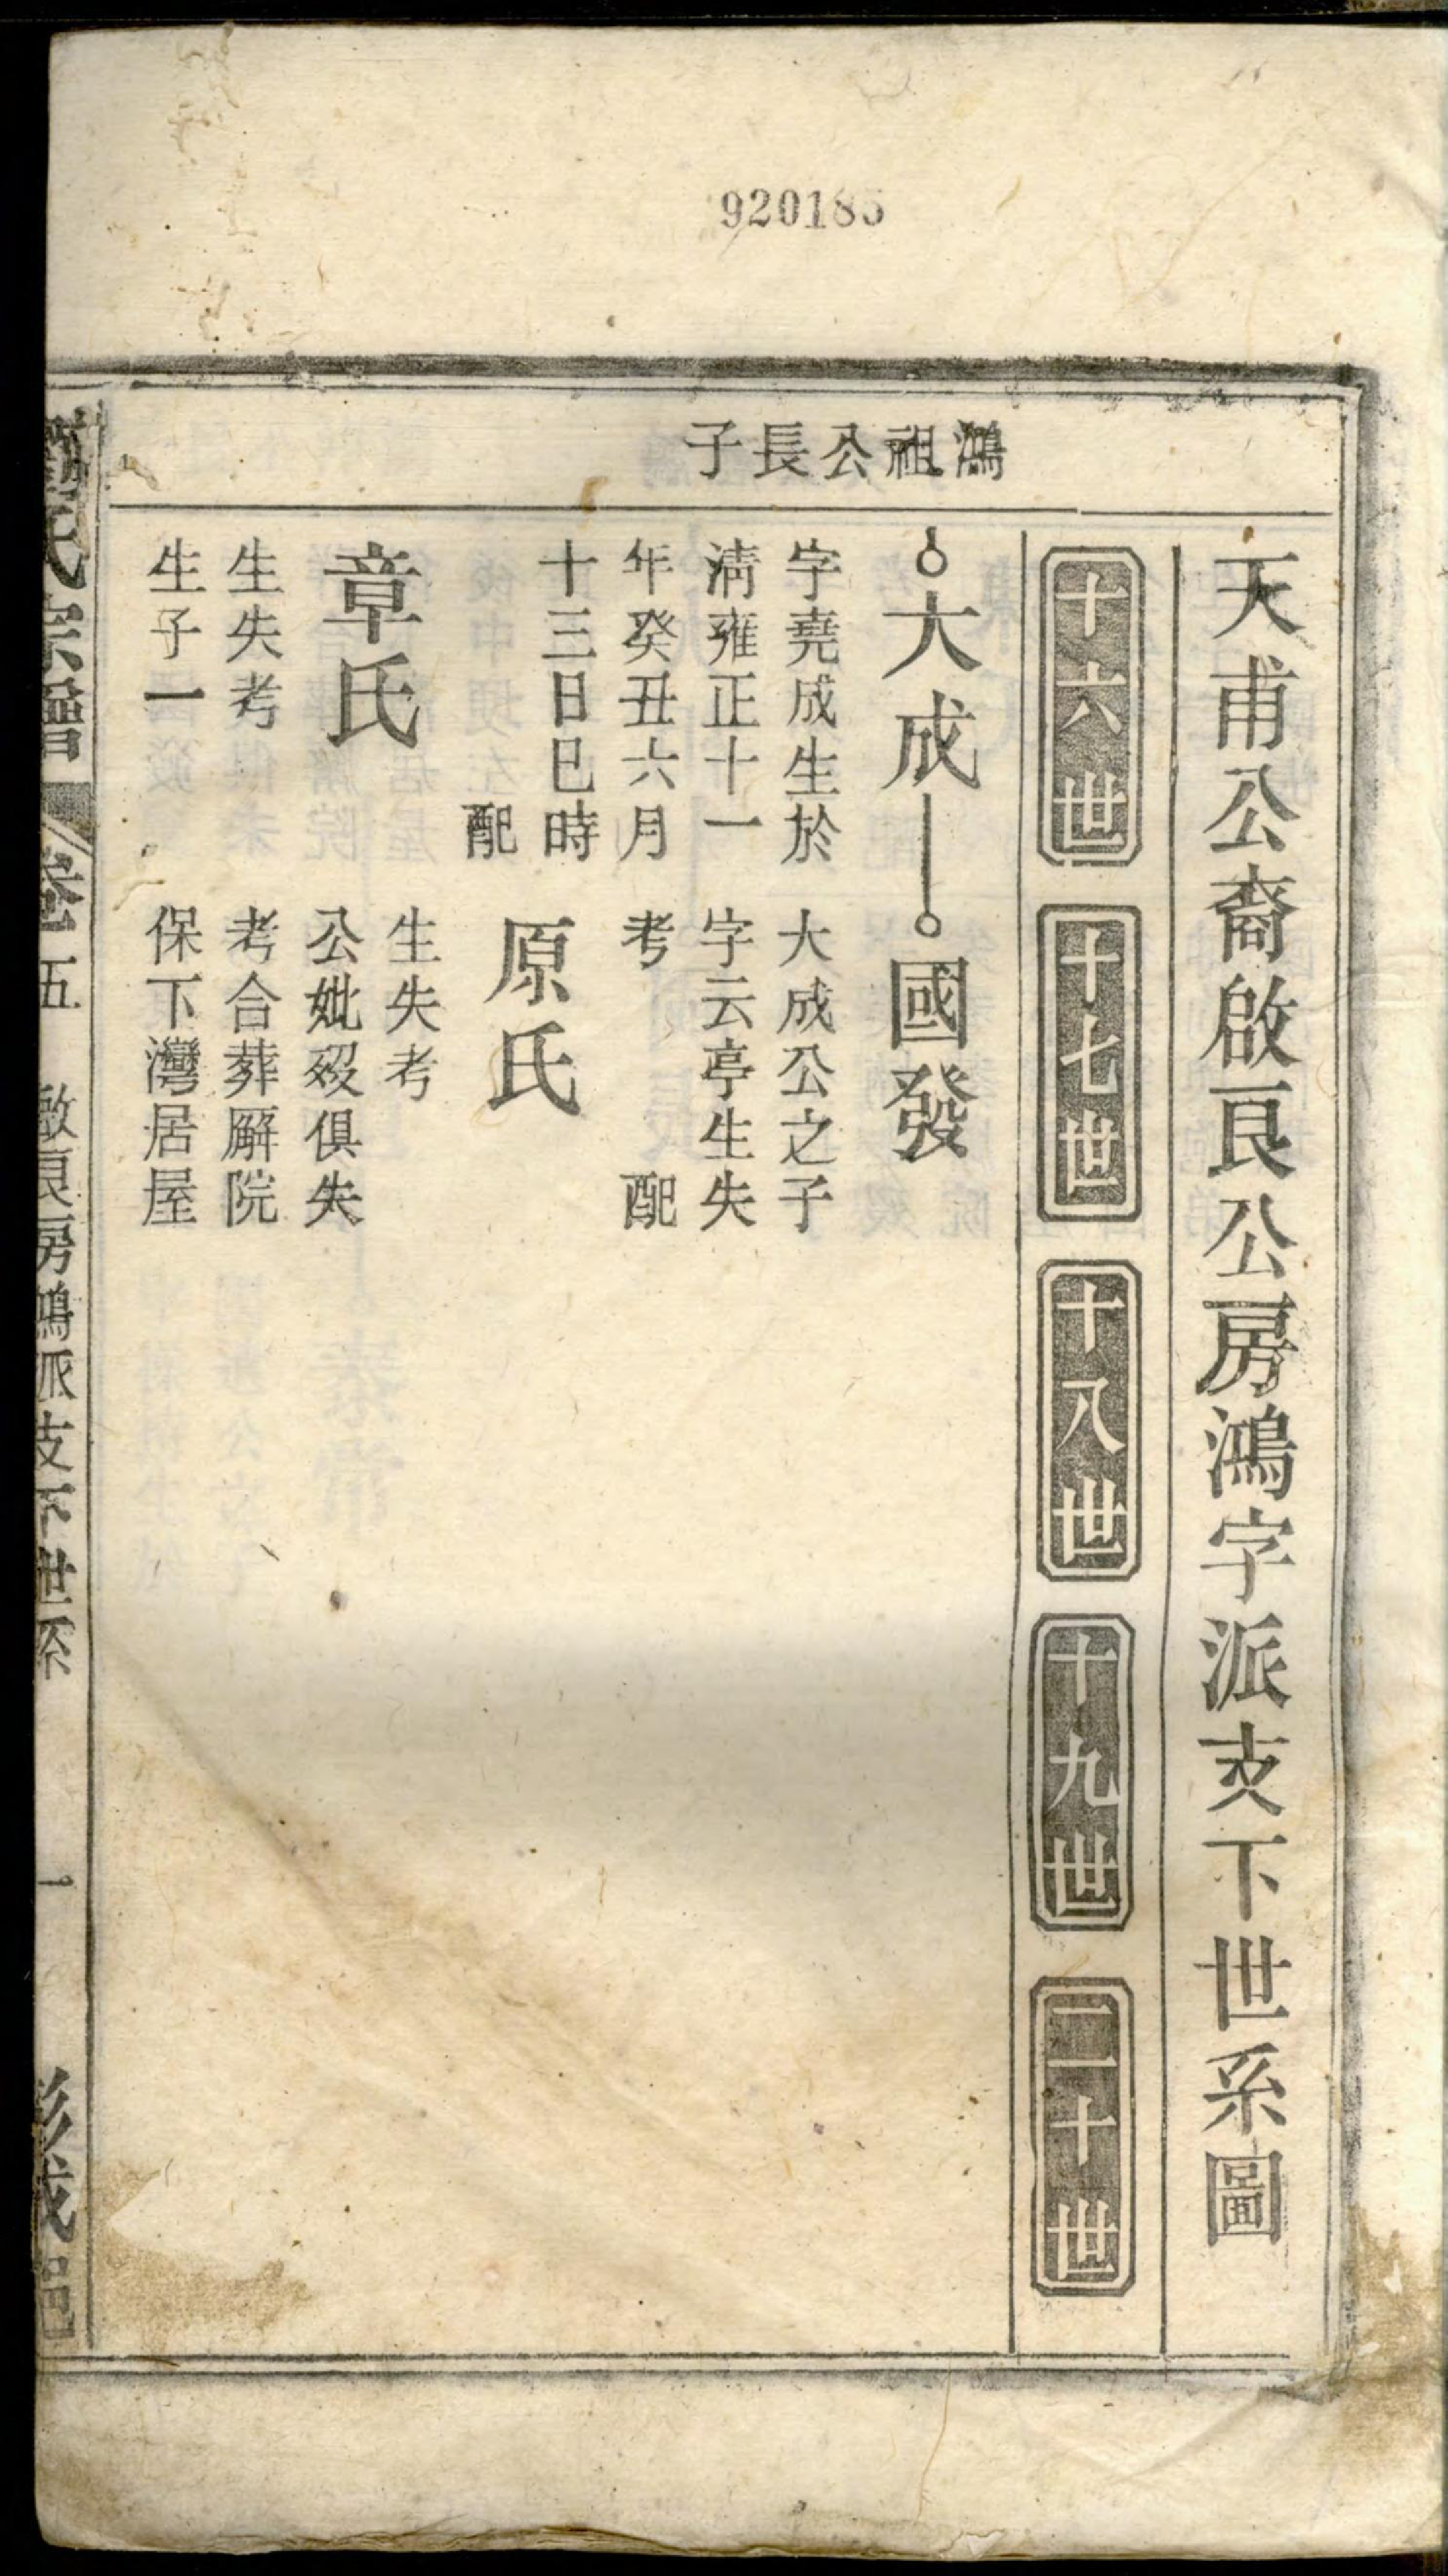 920185
天甫公裔啟良公房鴻字派支下世系圖
十六世
十七世
十八世
十九世
二十世
鴻祖公長子
大成
國發
字堯成生於
淸雍正十一
年癸丑六月
十三日巳時
配
章氏
生失考
生子一
大成公之子
字云亭生失
考 配
原氏
生失考
公妣歿俱失
考合葬廨院
保下灣居屋
氏宗譜 卷五 啟良房鴻派支下世系 一